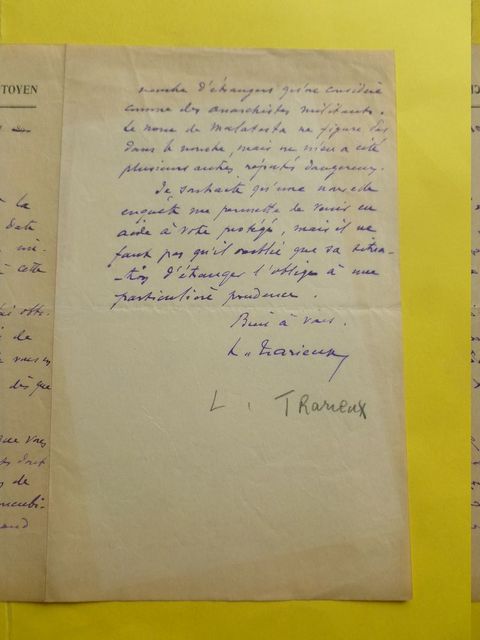 TOYEN
la
date
cette
de
dès que
que vous
dont
de
nombre d'étrangers qu'on considère
comme des anarchistes militants.
Le nom de Malatesta ne figure pas
dans le nombre, mais on m'en a cité
plusieurs autres réputés dangereux.
Je souhaite qu'une nouvelle
enquête me permette de venir en
aide à votre protégé, mais il ne
faut pas qu'il oublie que sa situa-
-tion d'étranger l'oblige à une
particulière prudence.
Bien à vous.
L. Trarieux
L. TRarieux